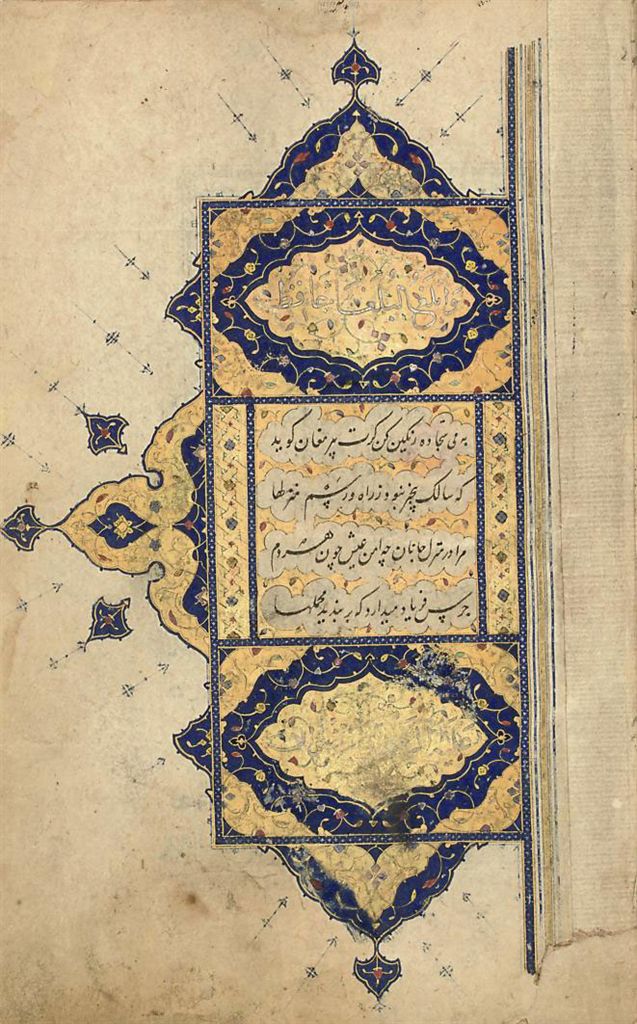 البلغا حافظ
به می سجاده رنگین کن کرت پیر مغان کوید
که سالک بیخبر نبود ز راه و رسم منزلها
مرا در منزل جانان چه امن عیش چون هر دم
جرس فریاد میدارد که بربندید محملها